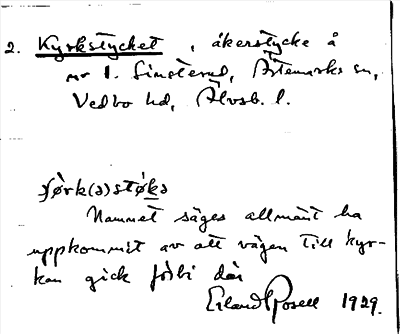 2. Kyrkstycket, åkerstycke å
nr 1. Simeterud, Årtemarks sn,
Vedbo hd, Älvsb. l.
Namnet säges allmänt ha
uppkommit av att vägen till kyr-
kan gick förbi där
Erland Rosell 1929.